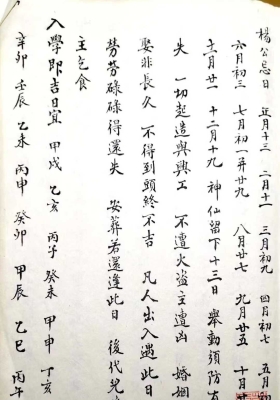 楊公忌日 正月十三 二月十一 三月初九 四月初七 五月初
六月初三 七月初一并廿九 八月廿七 九月廿五 十月
十一月廿一 十二月十九 神仙留下十三日 舉動須防
失 一切起造與興工 不遭火盜主遭凶 婚姻
娶非長久 不得到頭終不吉 凡人出入遇此日
勞勞碌碌得還失 安葬若還逢此日 後代兒
主乞食
入學即吉日宜 甲戌 乙亥 丙子 癸未 甲申 丁亥
辛卯 壬辰 乙未 丙申 癸卯 甲辰 乙巳 丙午